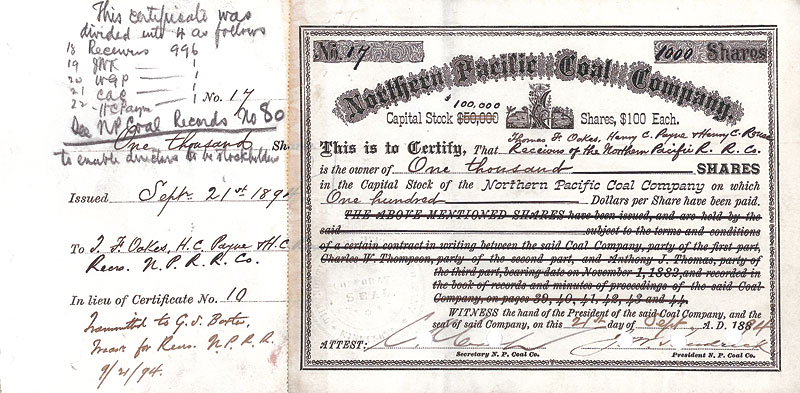 This certificate was
divided into 4 as follows
18 Receivers 996
19 JNK — 1
20 WGP — 1
21 CAC — 1
22 — HC Payne 1
No. 17
See N.P. Coal Records No 80
One thousand Sh
to enable directors to be stockholders
Issued Sept. 21st 1894
To T. F. Oakes, H.C. Payne & H.C
Recvs. N.P.R.R. Co.
In lieu of Certificate No. 10
Transmitted to G.S. Baxter,
Treasr for Recvs. N.P.R.R.
9/21/94.
No. 17 1000 Shares
Northern Pacific Coal Company.
$100,000
Capital Stock $50,000 Shares, $100 Each.
Thomas F. Oakes, Henry C. Payne & Henry C. Rouse
This is to Certify, That Receivers of the Northern Pacific R. R. Co.
is the owner of One thousand SHARES
in the Capital Stock of the Northern Pacific Coal Company on which
One hundred Dollars per Share have been paid.
THE ABOVE MENTIONED SHARES have been issued, and are held by the
said subject to the terms and conditions
of a certain contract in writing between the said Coal Company, party of the first part,
Charles W. Thompson, party of the second part, and Anthony J. Thomas, party of
the third part, bearing date on November 1, 1882, and recorded in
the book of records and minutes of proceedings of the said Coal
Company, on pages 39, 40, 41, 42, 43 and 44.
WITNESS the hand of the President of the said Coal Company, and the
seal of said Company, on this 21st day of Sept A. D. 1894
ATTEST:
Secretary N. P. Coal Co. President N. P. Coal Co.